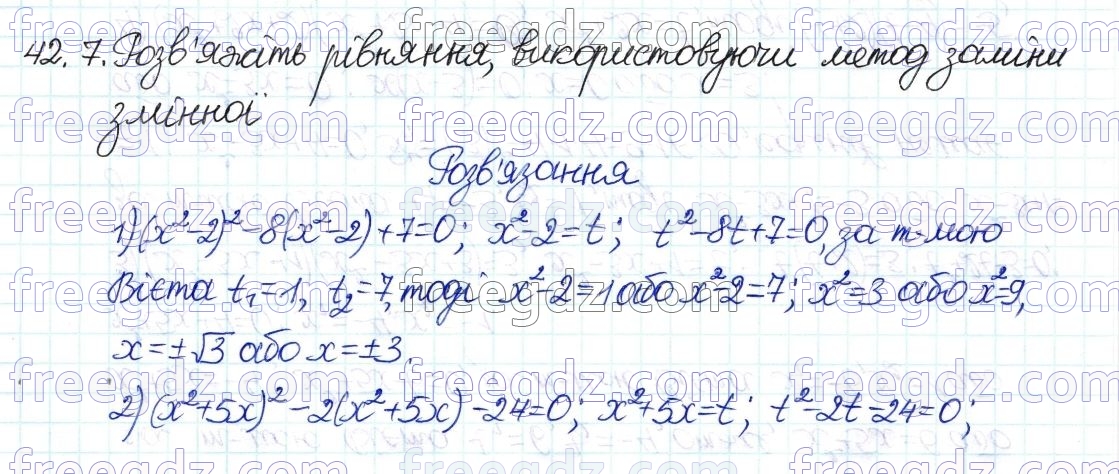 42.7. Розв'яжіть рівняння, використовуючи метод заміни
змінної
Розв'язання
1) (x²-2)²-8(x²-2)+7=0; x²-2=t; t²-8t+7=0, за т-мою
Вієта t₁=1, t₂=7, тоді x²-2=1 або x²-2=7; x²=3 або x²=9,
x=±√3 або x=±3.
2) (x²+5x)²-2(x²+5x)-24=0; x²+5x=t; t²-2t-24=0;
freegdz.com freegdz.com freegdz.com
freegdz.com freegdz.com freegdz.com
freegdz.com freegdz.com freegdz.com
freegdz.com freegdz.com freegdz.com
freegdz.com freegdz.com freegdz.com
freegdz.com freegdz.com freegdz.com